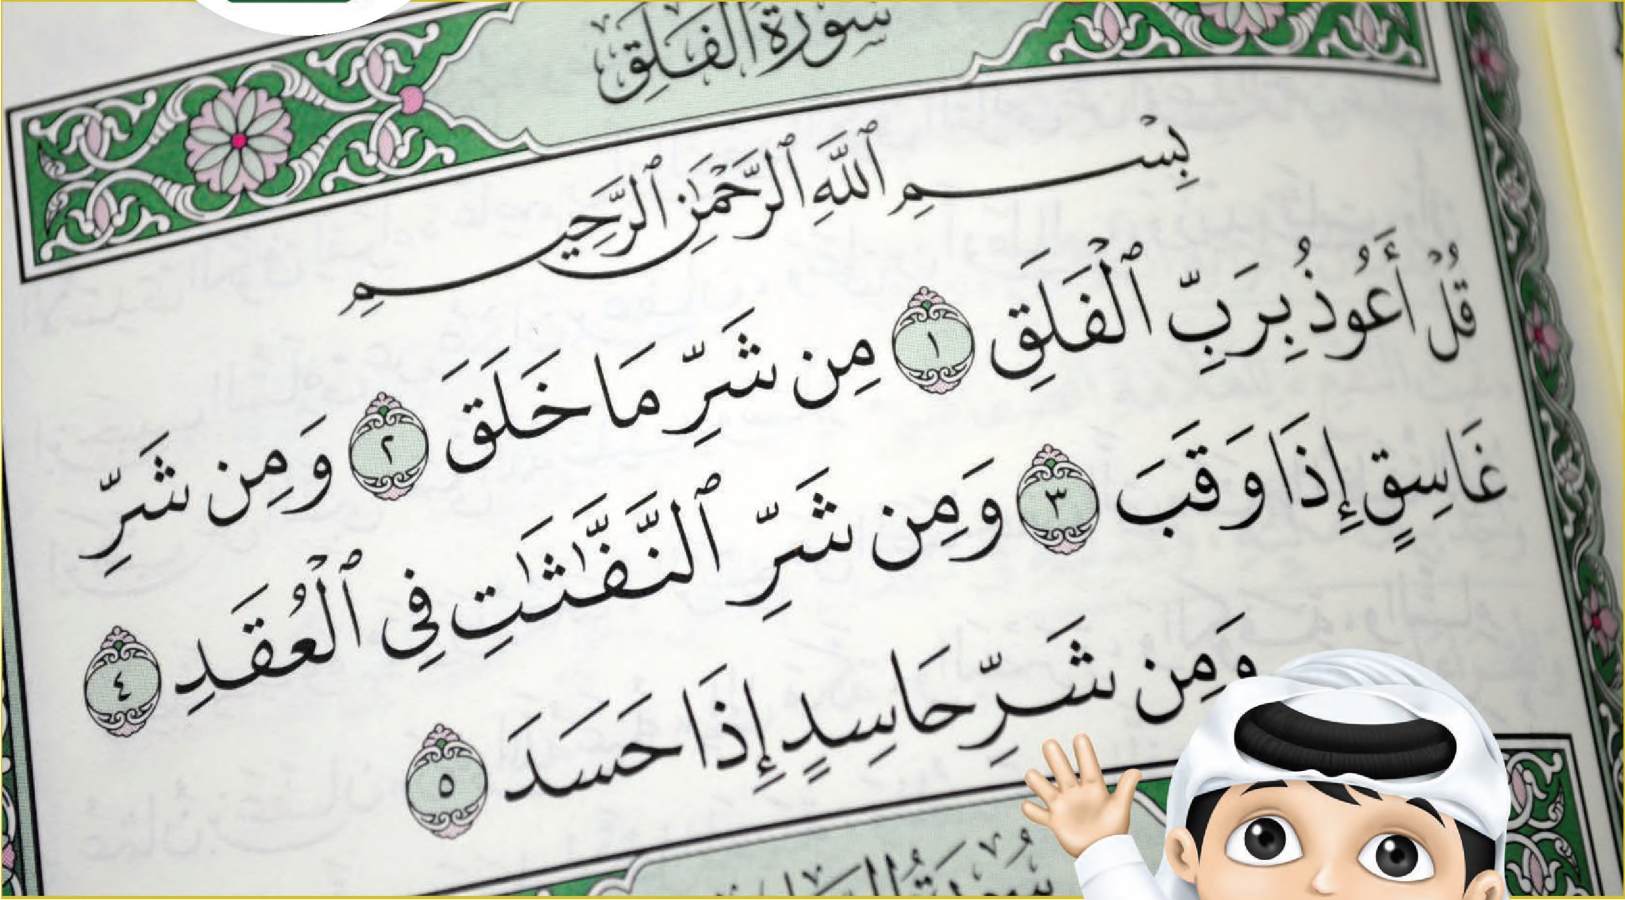 سورة الفلق
بِسْمِ ٱللَّهِ ٱلرَّحْمَٰنِ ٱلرَّحِيمِ
قُلْ أَعُوذُ بِرَبِّ ٱلْفَلَقِ ١ مِن شَرِّ مَا خَلَقَ ٢ وَمِن شَرِّ
غَاسِقٍ إِذَا وَقَبَ ٣ وَمِن شَرِّ ٱلنَّفَّٰثَٰتِ فِى ٱلْعُقَدِ ٤
وَمِن شَرِّ حَاسِدٍ إِذَا حَسَدَ ٥
سُورَةُ